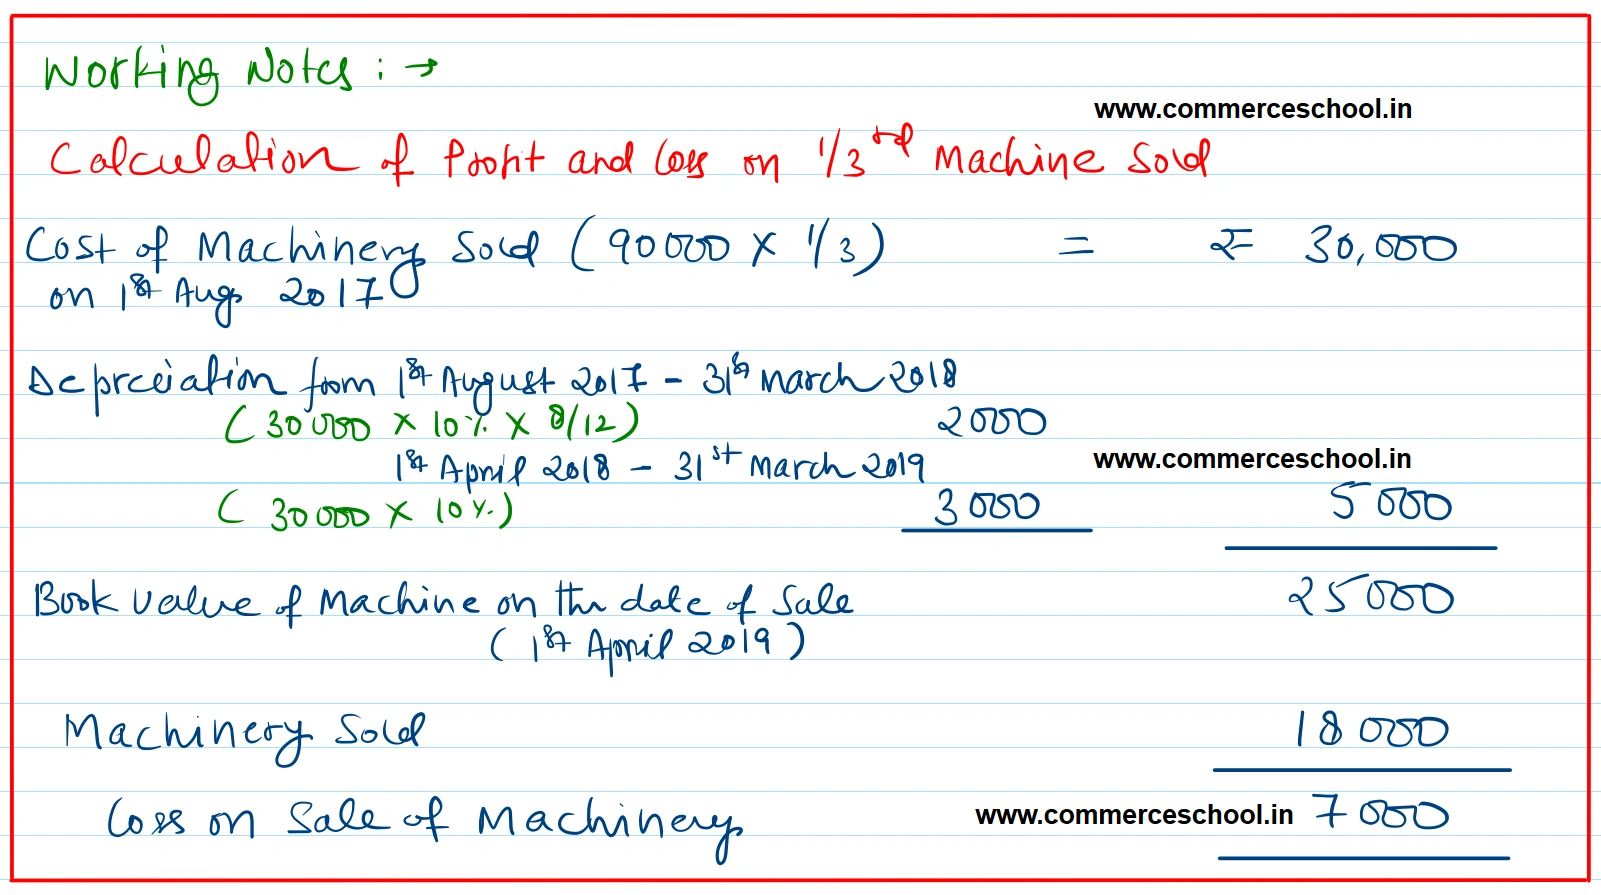 Working Notes : →
www.commerceschool.in
Calculation of Profit and Loss on 1/3rd Machine Sold
Cost of Machinery Sold (90000 × 1/3) = ₹ 30,000
on 1st Aug 2017
Depreciation from 1st August 2017 - 31st March 2018
(30000 × 10% × 8/12) 2000
1st April 2018 - 31st March 2019
www.commerceschool.in
(30000 × 10%) 3000 5000
Book Value of Machine on the date of Sale 25000
(1st April 2019)
Machinery Sold 18000
Loss on Sale of Machinery www.commerceschool.in 7000